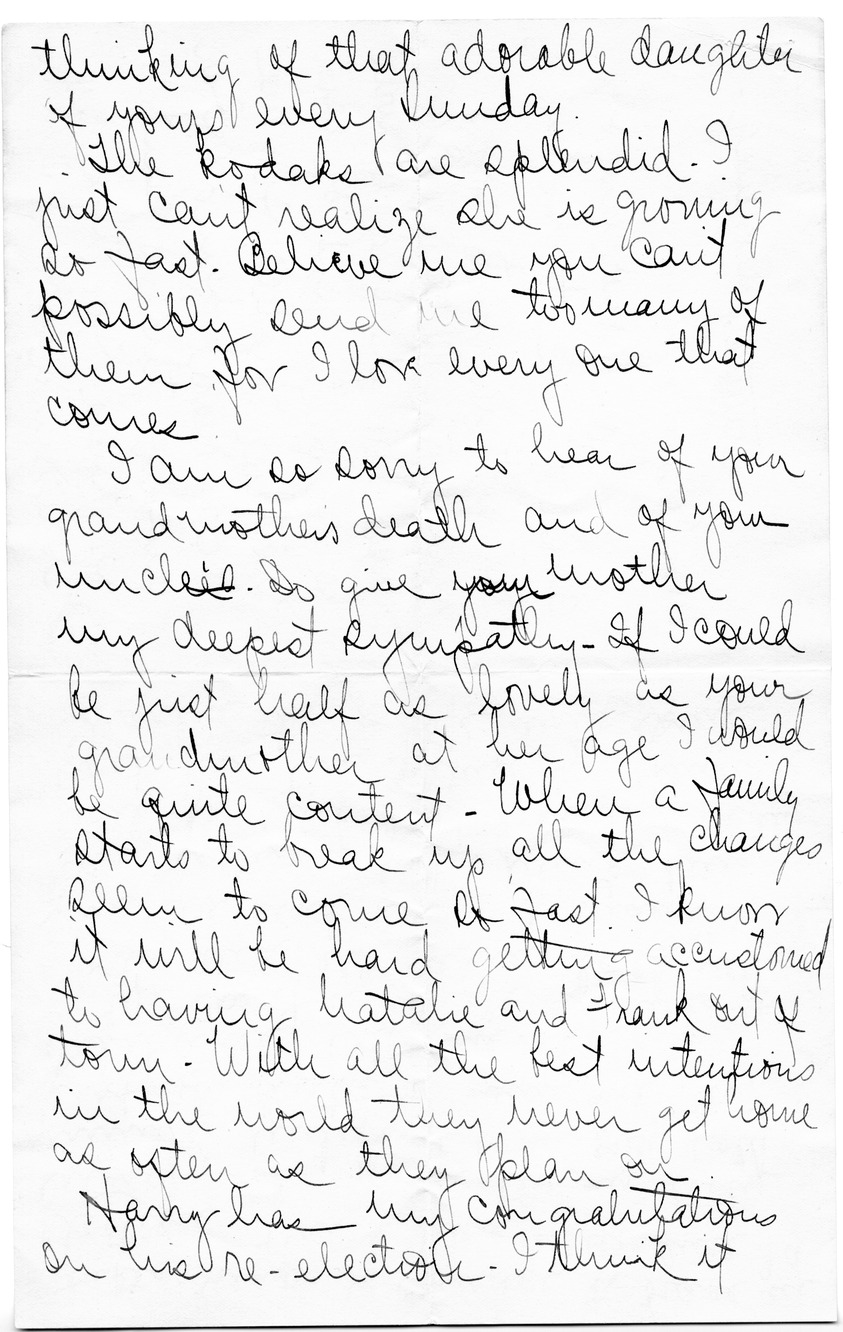 thinking of that adorable daughter
of yours every Sunday.
The kodaks are splendid. I
just can't realize she is growing
so fast. Believe me you can't
possibly send me too many of
them for I love every one that
comes.
I am so sorry to hear of your
grandmother's death and of your
uncle's. Do give your mother
my deepest sympathy - If I could
be just half as lovely as your
grandmother at her age I would
be quite content - When a family
starts to break up all the changes
seem to come so fast. I know
it will be hard getting accustomed
to having Natalie and Frank out of
town - With all the best intentions
in the world they never get home
as often as they plan on.
Harry has my congratulations
on his re-election - I think it